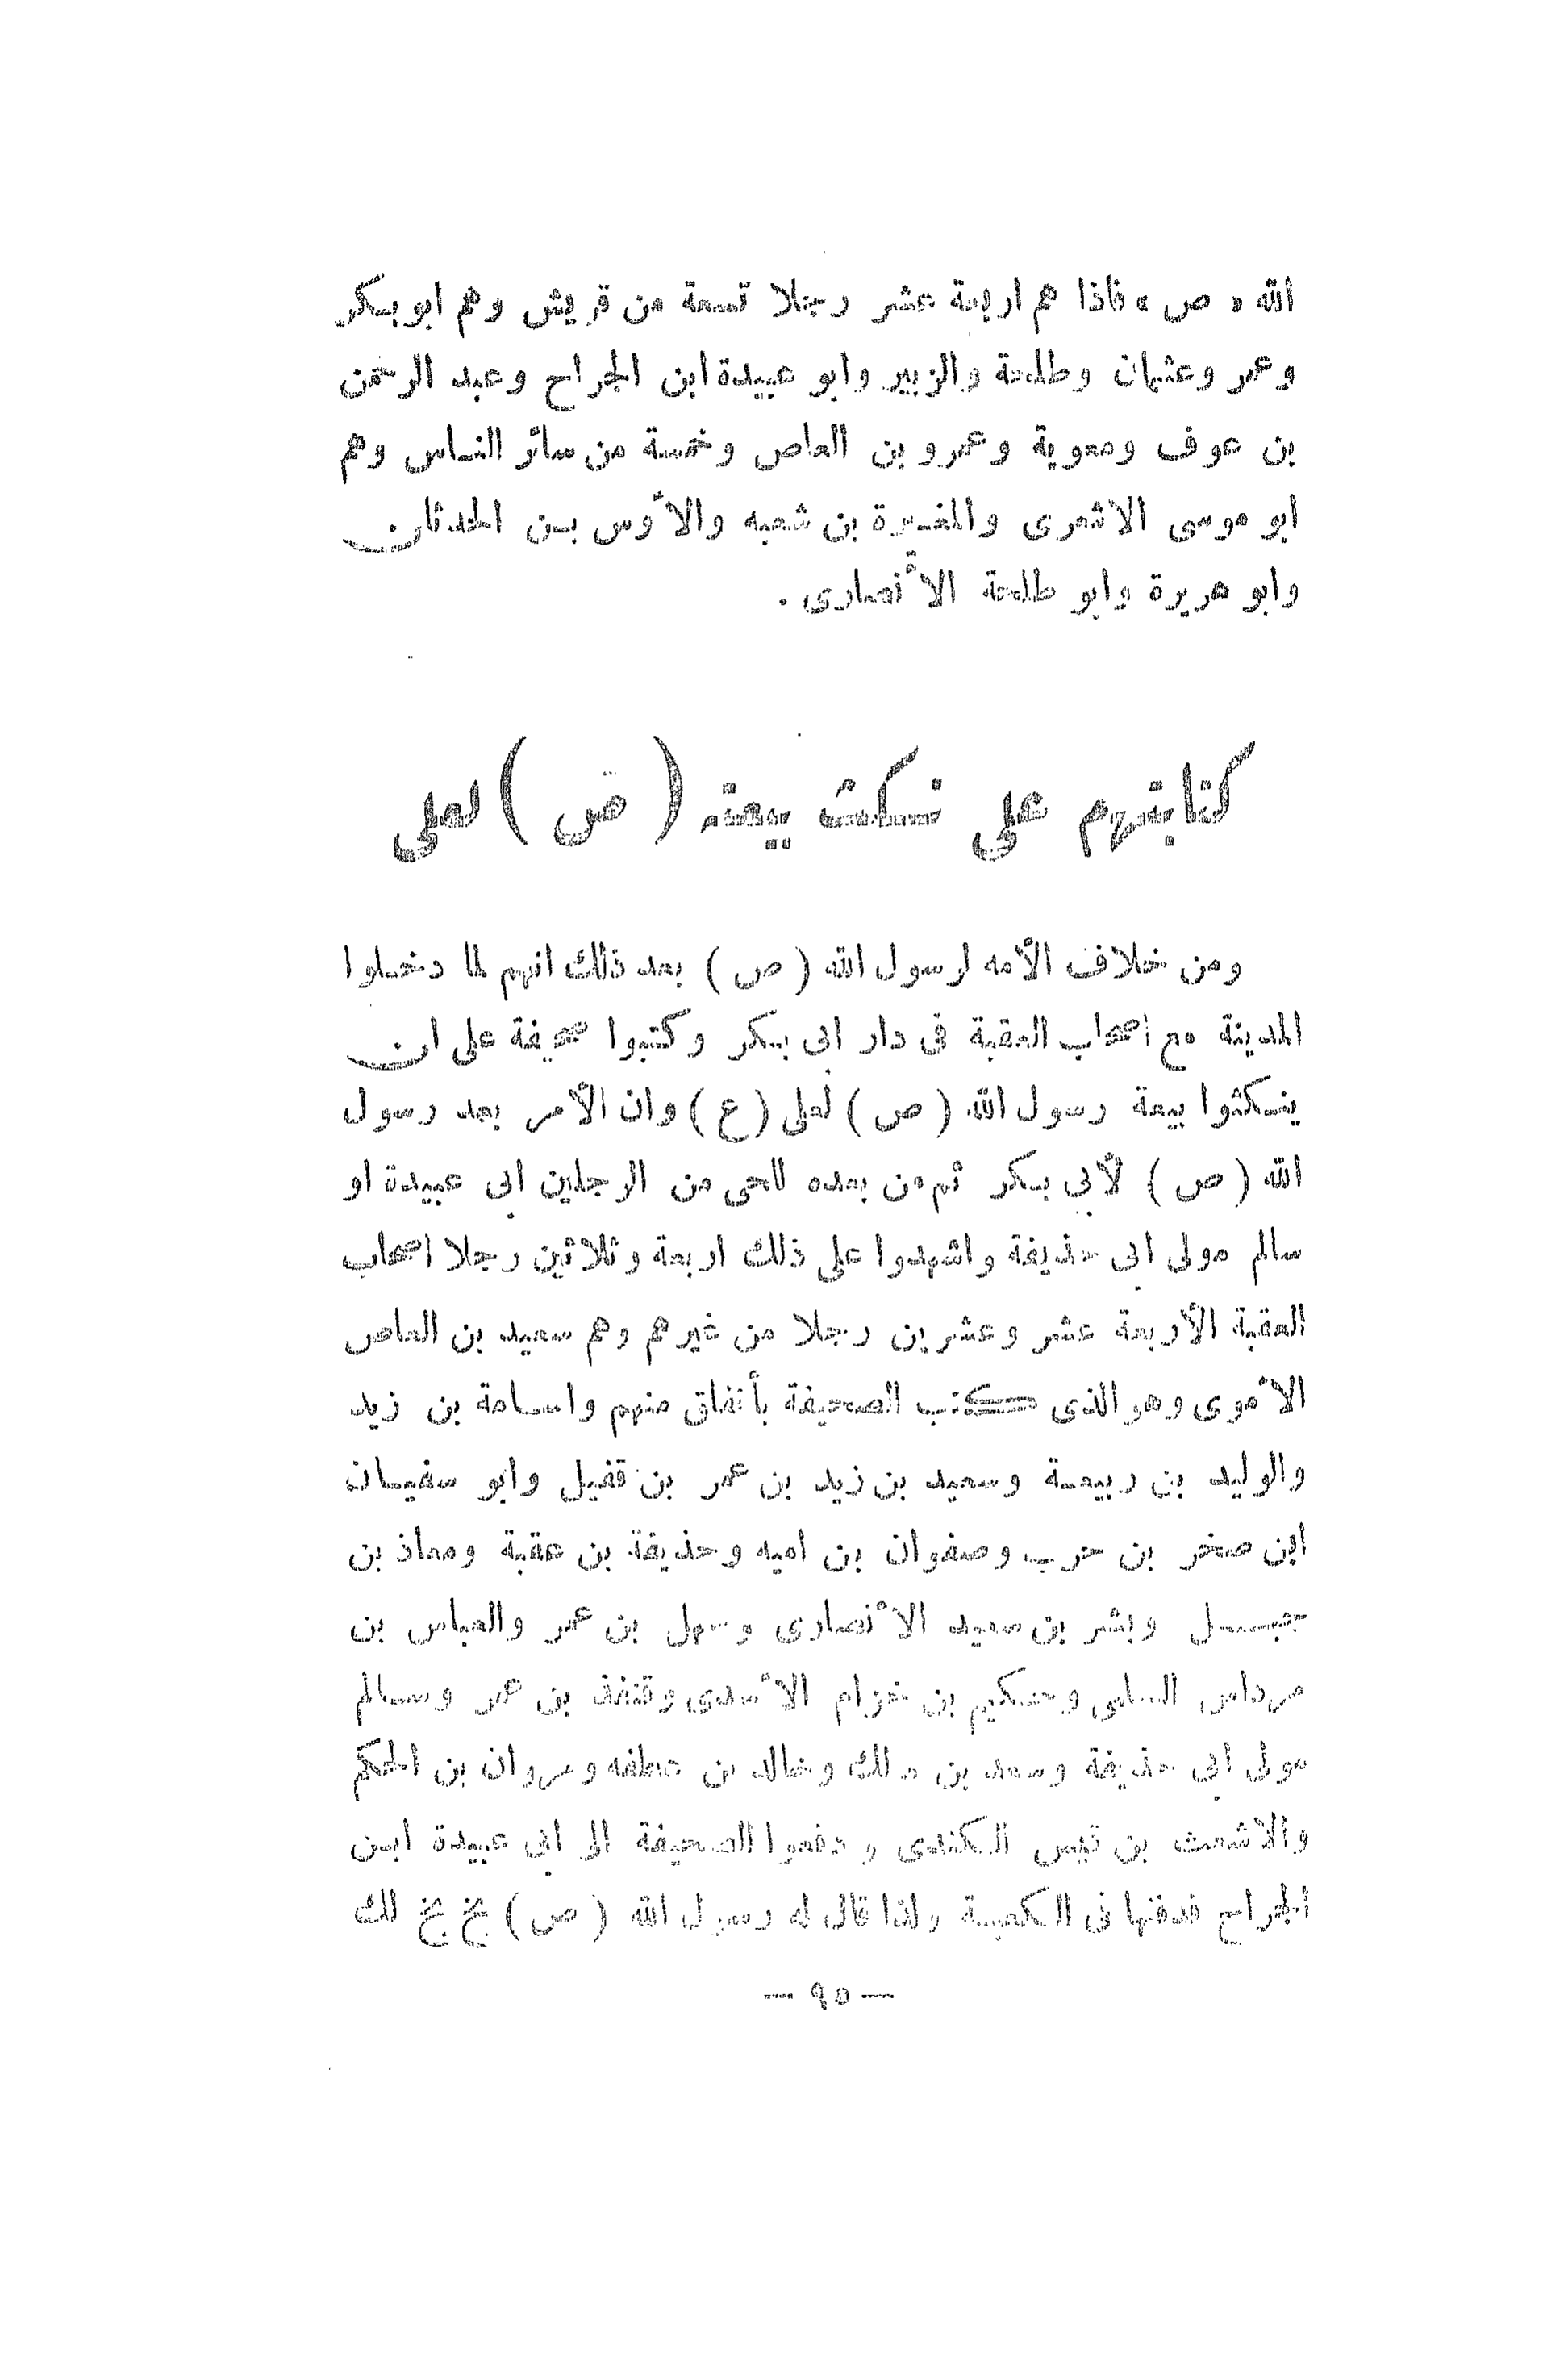 الله « ص » فاذا هم اربعة عشر رجلا تسعة من قريش وهم ابو بكر
وعمر وعثمان وطلحة والزبير وابو عبيدة ابن الجراح وعبد الرحمن
بن عوف ومعوية وعمرو بن العاص وخمسة من سائر الناس وهم
ابو موسى الاشعرى والمغيرة بن شعبه والأوس بن الحدثان
وابو هريرة وابو طلحة الأنصارى .
كتابتهم على نكث بيعته ( ص ) لعلى
ومن خلاف الأمه لرسول الله ( ص ) بعد ذلك انهم لما دخلوا
المدينة مع اصحاب العقبة في دار ابى بكر وكتبوا صحيفة على ان
ينكثوا بيعة رسول الله ( ص ) لعلى ( ع ) وان الأمر بعد رسول
الله ( ص ) لأبي بكر ثم من بعده للحى من الرجلين ابى عبيدة او
سالم مولى ابى حذيفة واشهدوا على ذلك اربعة وثلاثين رجلا اصحاب
العقبة الأربعة عشر وعشرين رجلا من غيرهم وهم سعيد بن العاص
الأموى وهو الذى كتب الصحيفة بأتفاق منهم واسامة بن زيد
والوليد بن ربيعة وسعيد بن زيد بن عمر بن قفيل وابو سفيان
ابن صخر بن حرب وصفوان بن اميه وحذيفة بن عقبة ومعاذ بن
جبل وبشر بن سعيد الأنصارى وسهل بن عمر والعباس بن
مرداس السلمى وحكيم بن خزام الأسدى وقنفذ بن عمر وسالم
مولى ابى حذيفة وسعد بن ملك وخالد بن عطفه ومروان بن الحكم
والاشعث بن قيس الكندى و دفعوا الصحيفة الى ابى عبيدة ابن
الجراح فدفنها فى الكعبة ولذا قال له رسول الله ( ص ) بخ بخ لك
— ٩٥ —